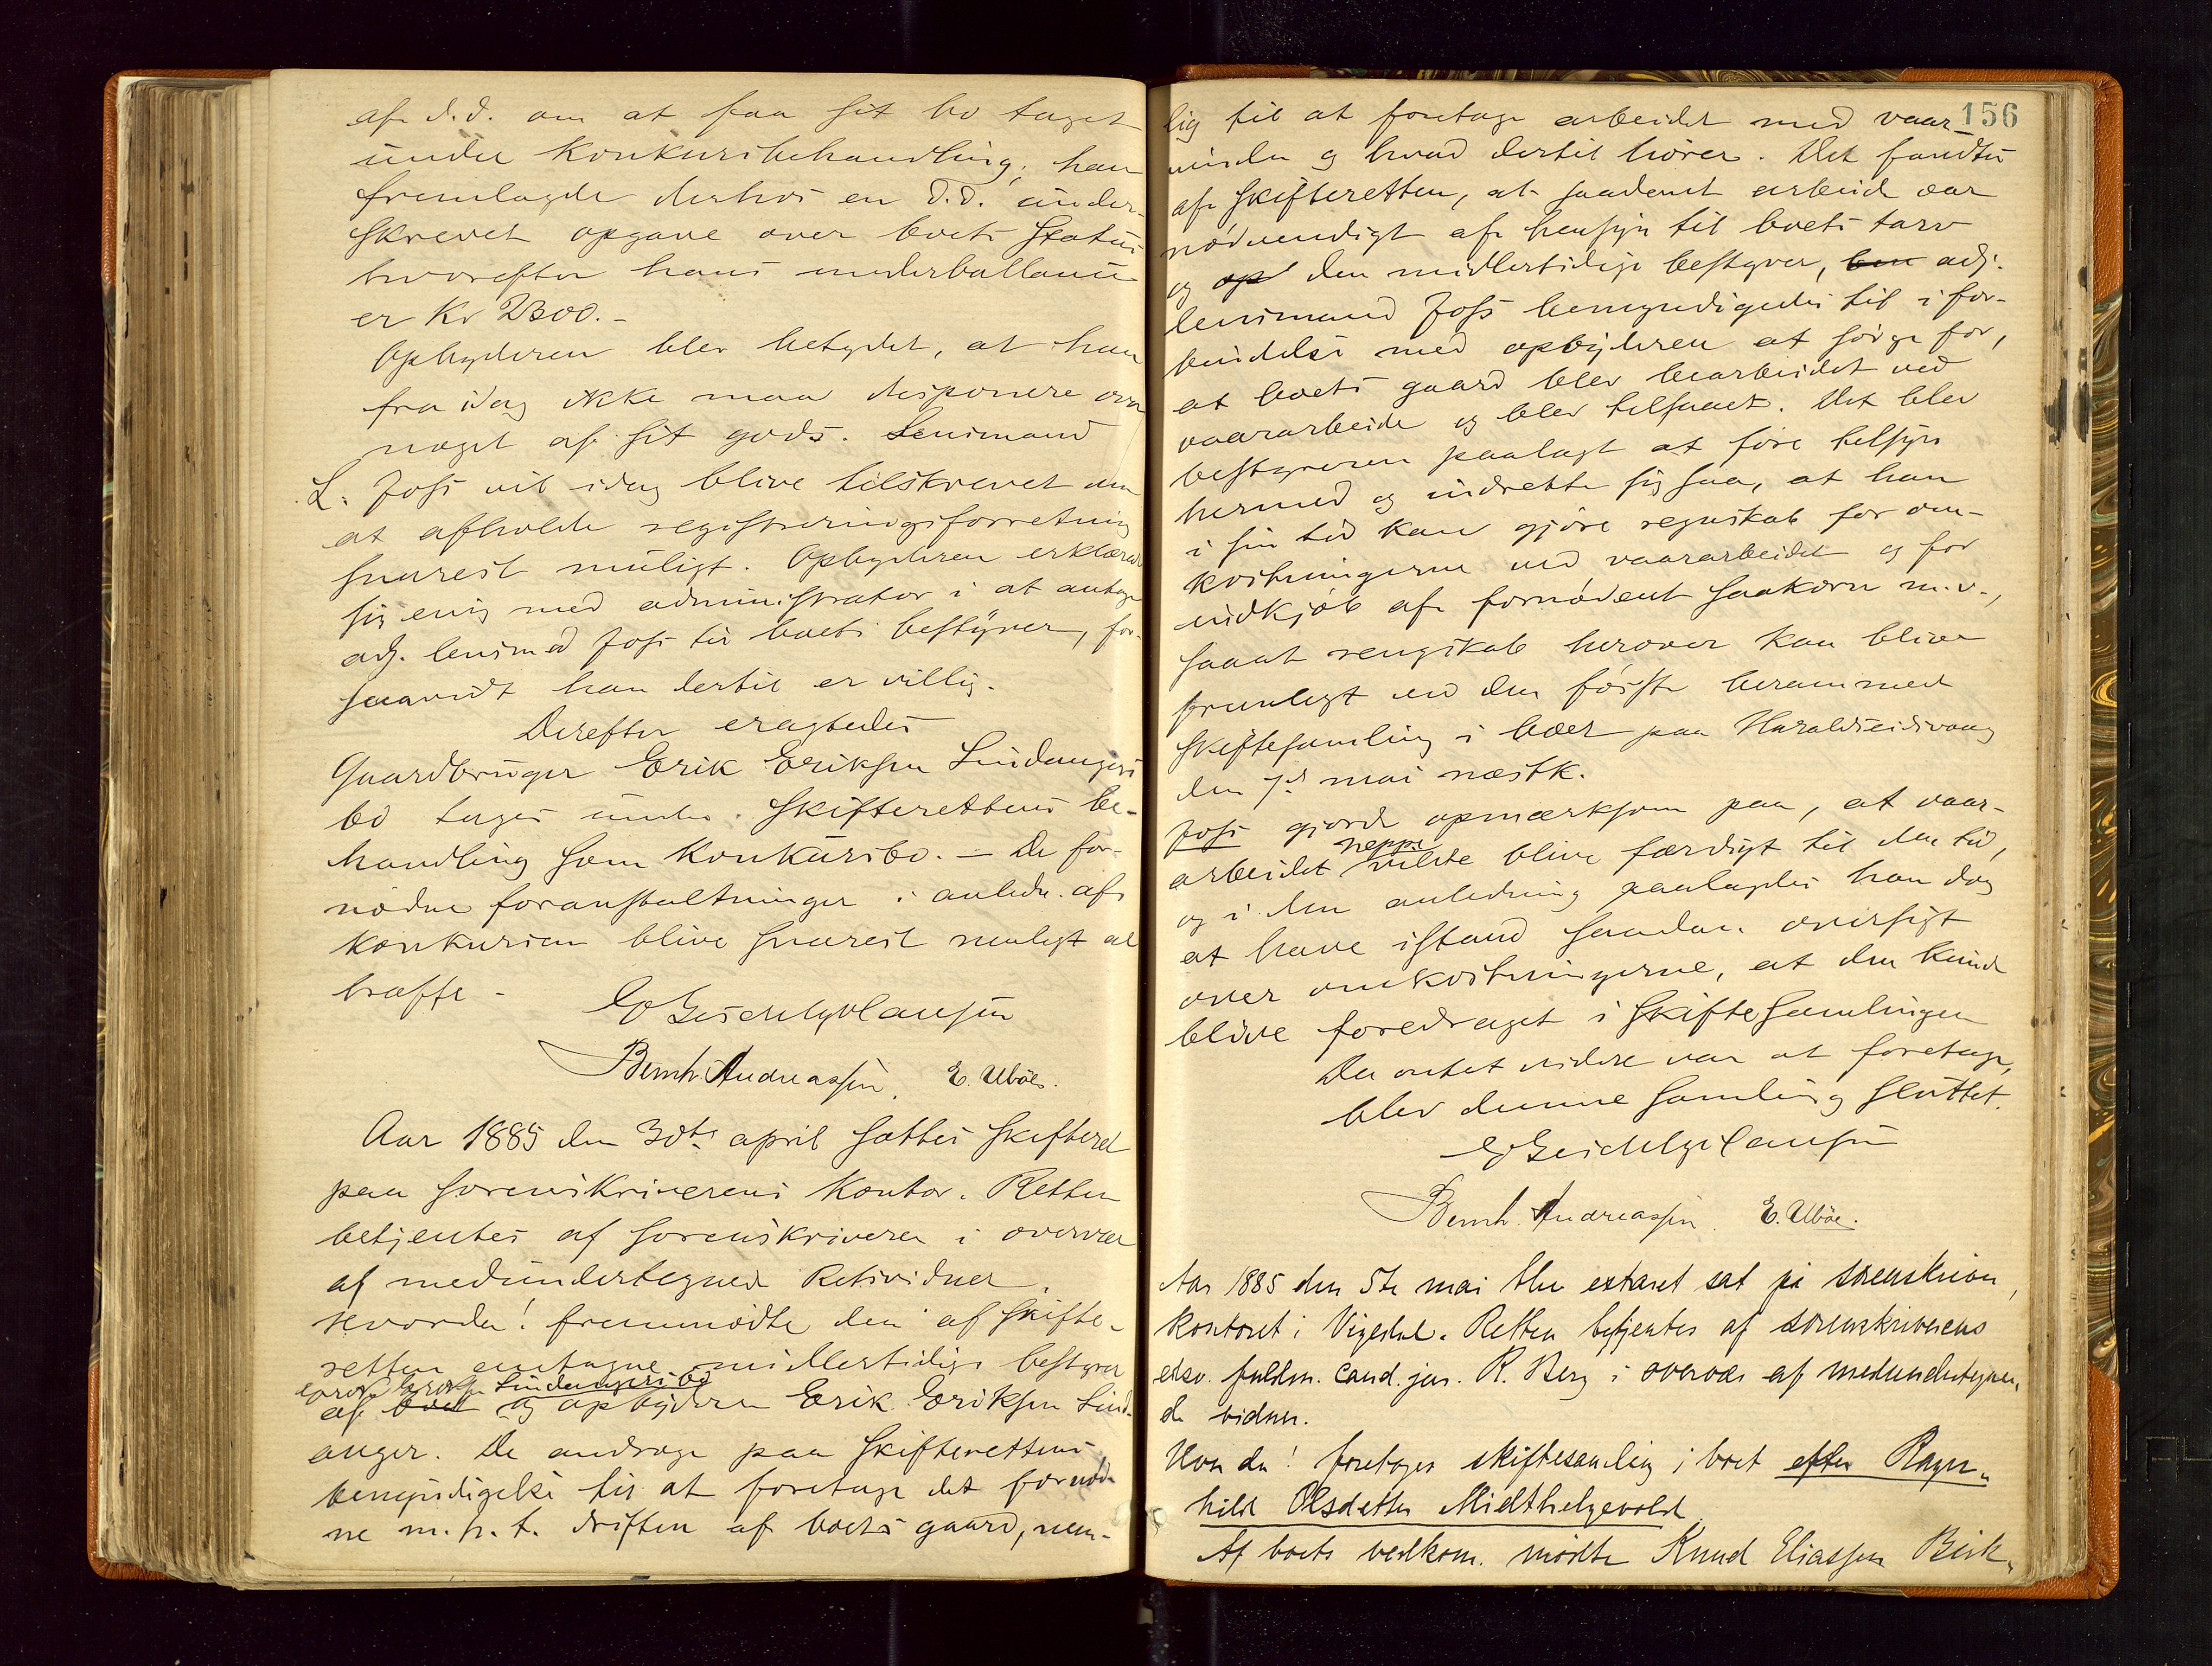 af d.d. om at faa sit bo taget
under konkursbehandling; han
fremlagde derhos en d.d. under-
skrevet opgave over boets status
hvorefter hans underballance
er Kr 2300.-
Opbyderen blev betydet, at han
fra idag ikke maa disponere over
noget af sit gods. Lensmand
L. Joss vil idag blive tilskrevet om
at afholde registreringsforretning
snarest muligt. Opbyderen erklærede
sig enig med administrator i at antage
adj. lensmd Joss til boets bestyrer, for-
saavidt han dertil er villig.
Derefter eragtedes
Gaardbruger Erik Eriksen Lindangers
bo tages under skifterettens be-
handling som konkursbo. – De for-
nødne foranstaltninger i anledn. af
konkursen blive snarest muligt at
træffe -
Bernh. Andreassen. E. Ubøe.
Aar 1885 den 30te april sattes skifteret
paa sorenskriverens kontor. Retten
betjentes af sorenskriveren i overvær
af medundertegnede Retsvidner.
Hvorda! fremmødte den af skifte-
retten antagne midlertidige bestyrer
Erik Eriksen Lindangers bo
af boet og opbyderen Erik Eriksen Lind-
anger. De androge paa skifterettens
bemyndigelse til at foretage det fornød-
ne m.h.t. driften af boets gaard, nem-
156
lig til at foretage arbeidet med vaar-
vinden og hvad dertil hører. Det fandtes
af skifteretten, at saadant arbeide var
nødvendigt af hensyn til boets tarv
og op den midlertidige bestyrer, ben adj.
lensmand Joss bemyndigedes til i for-
bindelse med opbyderen at sørge for,
at boets gaard blev bearbeidet ved
vaararbeide og blev tilsaaet. Det blev
bestyreren paalagt at føre tilsyn
hermed og indrette sig saa, at han
i sin tid kan gjøre regnskab for om-
kostningerne ved vaararbeidet og for
indkjøb af fornødent saakorn m.v.,
saant rengskab herover kan blive
fremlagt ved den første berammede
skiftesamling i boet paa Haraldseidvaag
den 7de mai næstk.
Joss gjorde opmærksom paa, at vaar-
neppe
arbeidet vilde blive færdigt til den tid,
og i den anledning paalagdes han dog
at have istand saadan oversigt
over omkostningerne, at den kunde
blive foredraget i skiftesamlingen
Da intet videre var at foretage,
blev denne samling sluttet.
Bernh. Andreassen. E. Ubøe.
Aar 1885 den 5te mai blev extraret sat på sorenskriver
kontoret i Vigedal. Retten betjentes af sorenskriverens
edsv. fuldm. cand. jur. R. Berg i overvær af medundertegne,
de vidner.
Hvor da! foretoges skiftesamling i boet efter Ragn-
hild Olsdatter Midthelgevold
Af boets vedkom. mødte Knud Eliassen Birk-